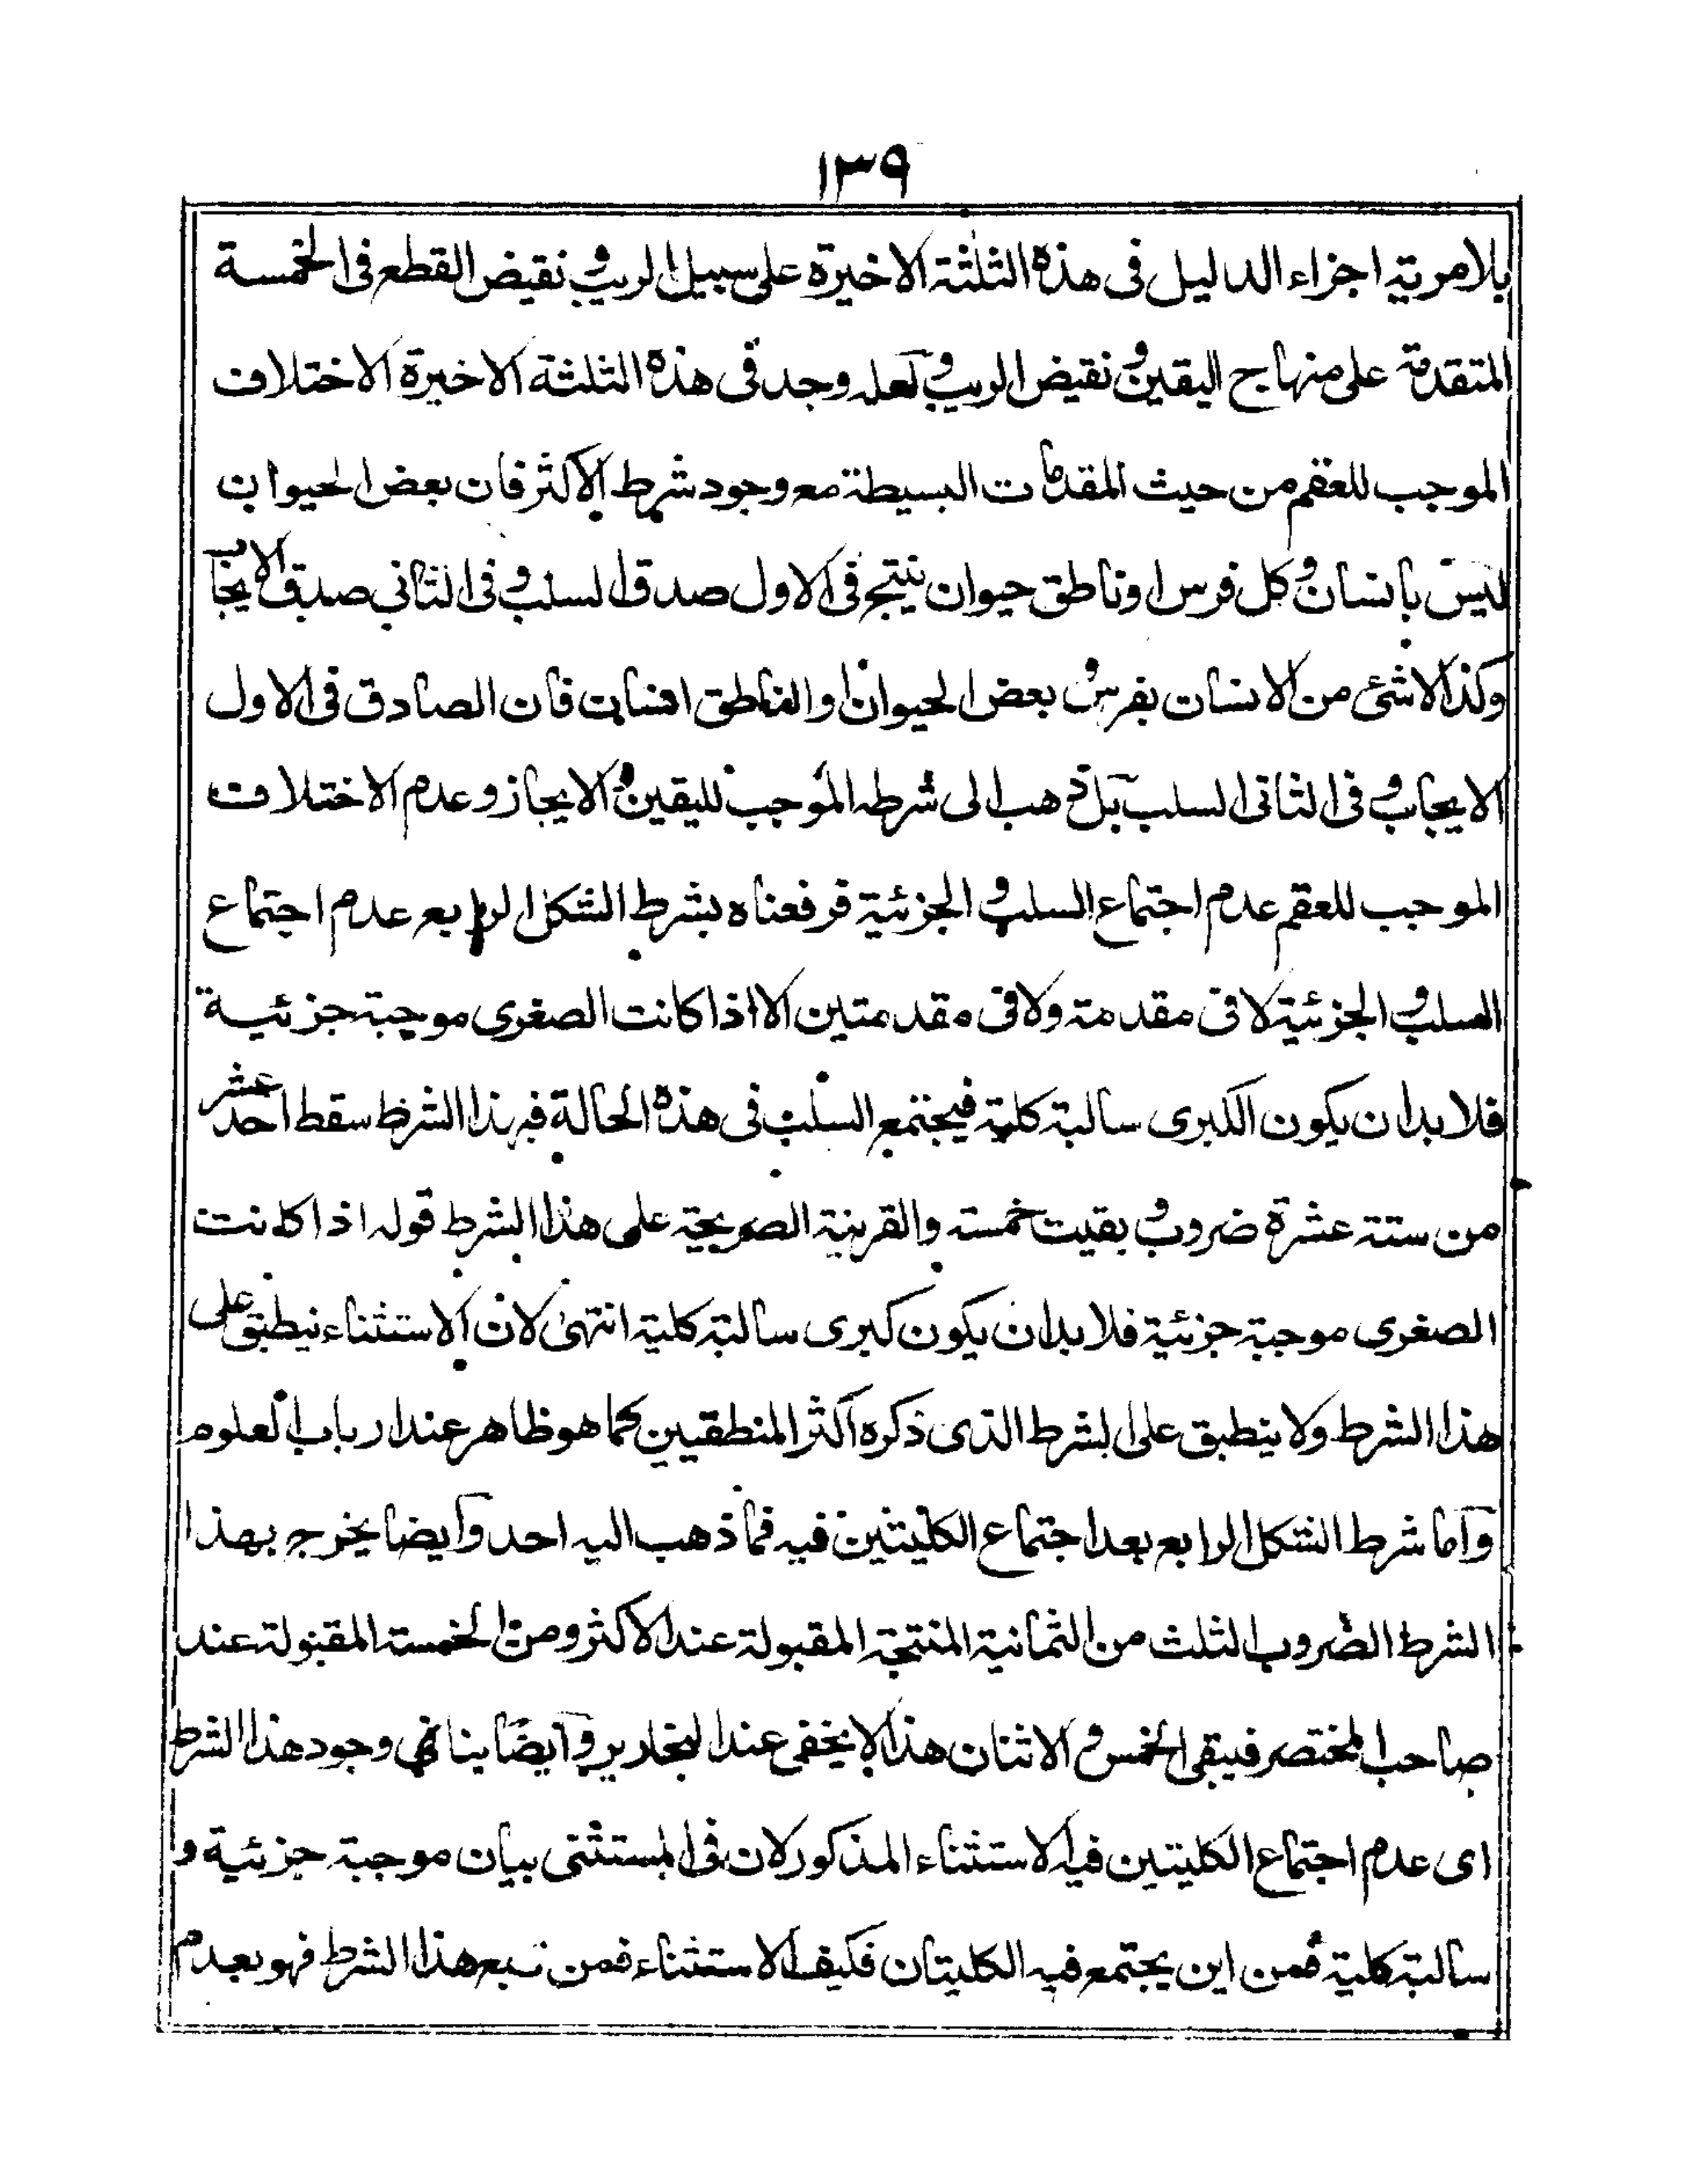 ١٣٩
بلا مرية اجزاء الدليل فى هذه الثلثة الاخيرة على سبيل الريب و نقيض القطع فى الخمسة
المتقدمة على منهاج اليقين و نقيض الريب و لعله وجد فى هذه الثلثة الاخيرة الاختلاف
الموجب للعقم من حيث المقدمات البسيطة مع وجود شرط الاكثر فان بعض الحيوان
ليس بانسان و كل فرس او ناطق حيوان ينتج فى الاول صدق السلب و فى الثانى صدق الايجاب
وكذا لا شئ من الانسان بفرس و بعض الحيوان او الناطق انسان فان الصادق فى الاول
الايجاب و فى الثانى السلب بل ذهب الى شرطه الموجب لليقين و الايجاز و عدم الاختلاف
الموجب للعقم عدم اجتماع السلب و الجزئية فرفعناه بشرط الشكل الرابع عدم اجتماع
السلب و الجزئية لا فى مقدمة ولا فى مقدمتين الا اذا كانت الصغرى موجبة جزئية
فلا بد ان يكون الكبرى سالبة كلية فيجتمع السلب فى هذه الحالة فبهذا الشرط سقط احد عشر
من ستة عشرة ضروب و بقيت خمسة والقرينة الصريحة على هذا الشرط قوله اذا كانت
الصغرى موجبة جزئية فلا بد ان يكون كبرى سالبة كلية انتهى لان الاستثناء ينطبق على
هذا الشرط ولا ينطبق على الشرط الذى ذكره اكثر المنطقيين كما هو ظاهر عند ارباب العلوم
واما شرط الشكل الرابع بعد اجتماع الكليتين فيه فما ذهب اليه احد وايضا يخرج بهذا
الشرط الضروب الثلث من الثمانية المنتجة المقبولة عند الاكثر و من الخمسة المقبولة عند
صاحب المختصر فيبقى الخمس و الاثنان هذا لا يخفى عند النحارير و ايضا ينافى وجود هذا الشرط
اى عدم اجتماع الكليتين فيه الاستثناء المذكور لان فى المستثنى بيان موجبة جزئية و
سالبة كلية فمن اين يجتمع فيه الكليتان فكيف الاستثناء فمن هذا الشرط فهو بعدم